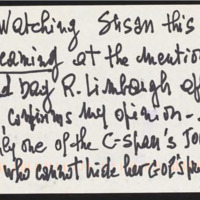 Watching Susan this
eaming at the mention
d bag R. Limbaugh of
confirms my opinion -
ly one of the C-Span's Jou
who cannot hide her